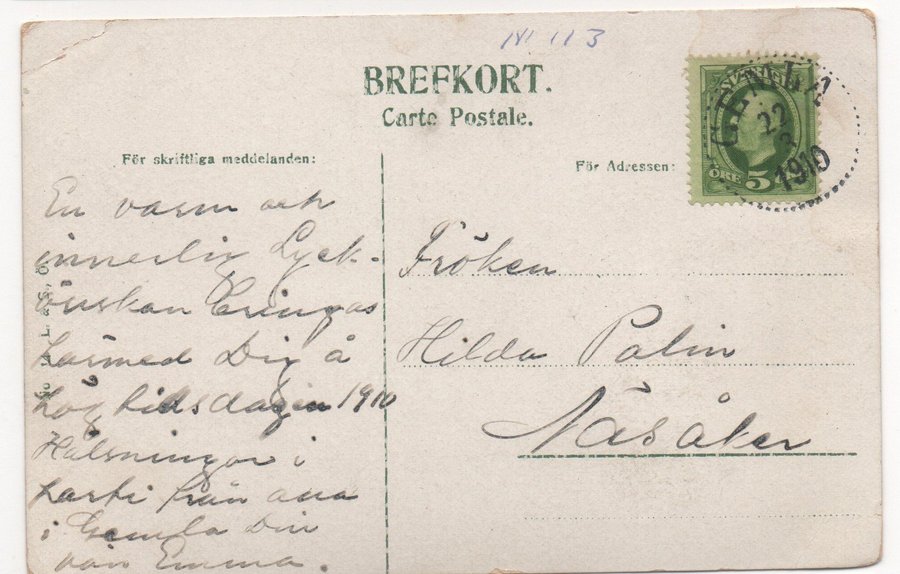 BREFKORT.
Carte Postale.
För skriftliga meddelanden:
För Adressen:
SVERIGE
ÖRE 5
GEMLA
22
3
1910
En varm och
innerlig Lyck-
önskan bringas
härmed Dig å
högtidsdagen 1910
Hälsningar i
från
i Gemla Din
vän Emma.
Fröken
Hilda Palin
Näsåker